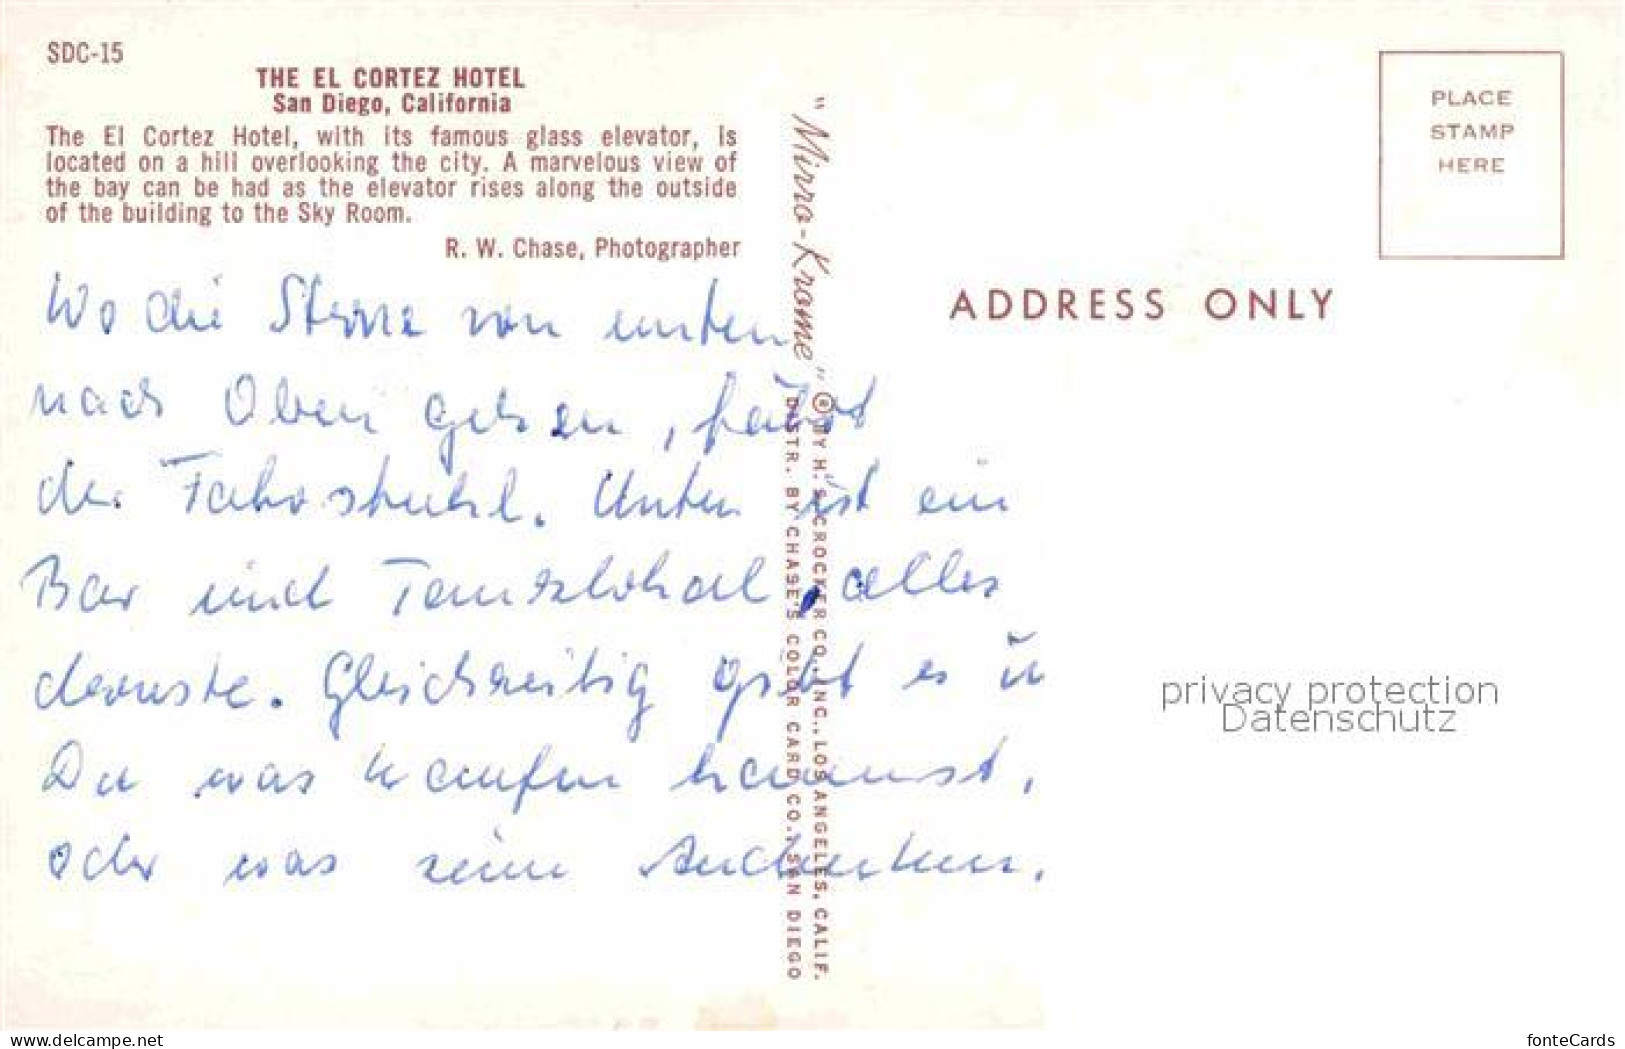 SDC-15
THE EL CORTEZ HOTEL
San Diego, California
The El Cortez Hotel, with its famous glass elevator, is
located on a hill overlooking the city. A marvelous view of
the bay can be had as the elevator rises along the outside
of the building to the Sky Room.
R. W. Chase, Photographer
Wo die Sterne von unten
nach Oben gehen, fährt
der Fahrstuhl. Unten ist ein
Bar und Tanzlokal, alles
Gleichzeitig gibt es
Du was kaufen kannst,
oder was zum Andenken.
"Mirro-Krome" ® BY H. S. CROCKER CO., INC., LOS ANGELES, CALIF.
DISTR. BY CHASE'S COLOR CARD CO., SAN DIEGO
PLACE
STAMP
HERE
ADDRESS ONLY
privacy protection
Datenschutz
www.delcampe.net
fonteCards